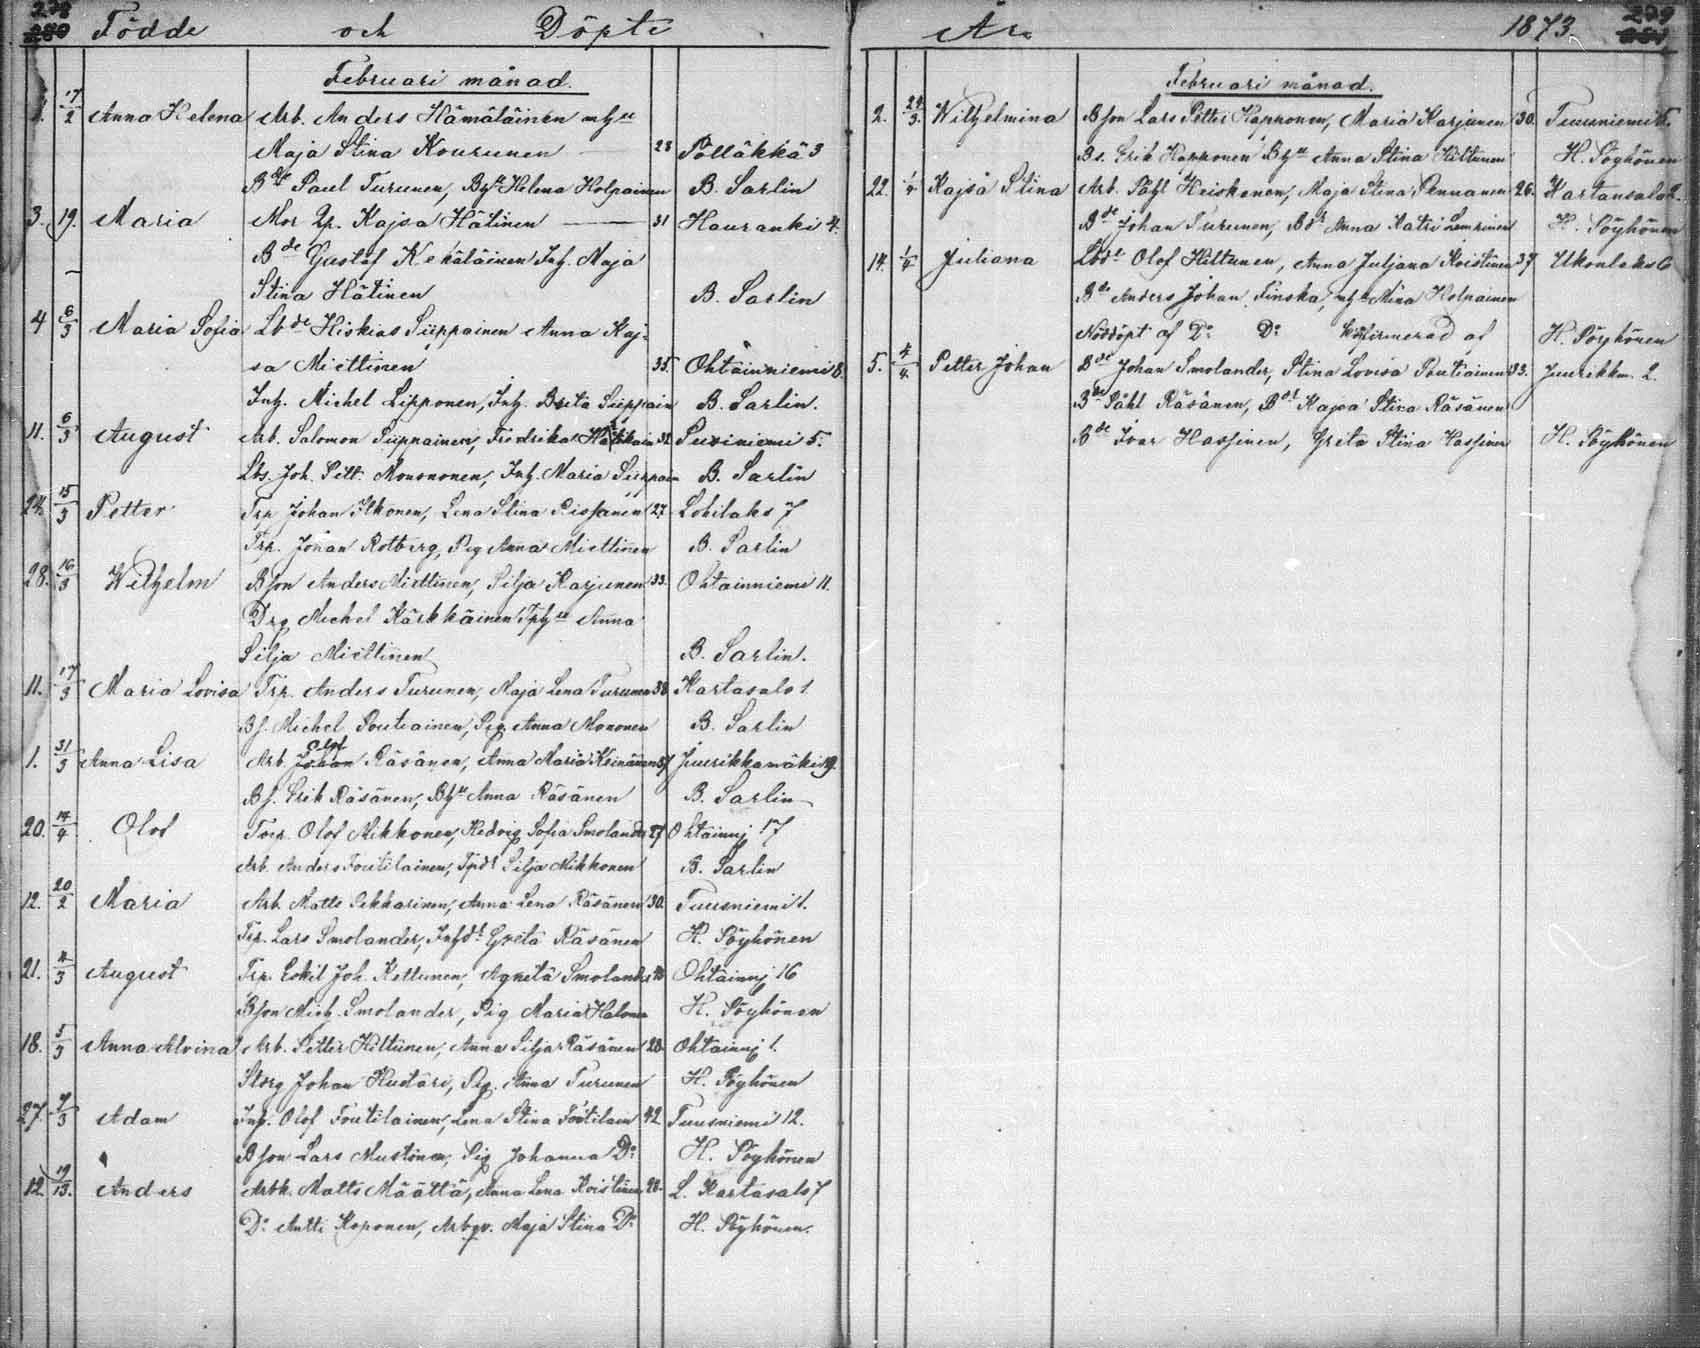 278 Födde och Döpte
280
Februari månad.
1. 17/2 Anna Helena Arb. Anders Hämäläinen
Maja Stina Kourunen 28 Pölläkkä 3
Paul Turunen, Helena Holpainen B. Sarlin
3. 19. Maria Mor Kajsa Hätinen 31 Hauranki 4.
Bde Gustaf Kekäläinen Inh. Maja
Stina Hätinen B. Sarlin
4 6/3 Maria Sofia Lbde Hiskias Siippainen Anna Kaj-
sa Miettinen 35. Ohtainniemi 8.
Inh. Michel Lipponen, Inh. Brita Siippain B. Sarlin.
11. 6/3 August Arb. Salomon Siippainen, Fredrika 32 5.
Lbs. Joh. Pett. Inh. Maria Siippain B. Sarlin
24. 15/3 Petter Trp Johan Ikonen, Lena Stina Rissanen 27 Lohilaks 7
Trp. Johan Rotberg, Pig Anna Miettinen B. Sarlin
28. 16/3 Wilhelm Bson Anders Miettinen, Silja Karjunen 33. Ohtainniemi 11.
Drg Michel Kärkkäinen Anna
Silja Miettinen B. Sarlin.
11. 17/3 Maria Lovisa Trp. Anders Turunen, Maja Lena Turunen 38 Kartasalo 1.
Bs. Michel Poutiainen, Pig Anna Mononen B. Sarlin
Olof
1. 31/3 Anna Lisa Arb. Johan Räsänen, Anna Maria Keinänen 37 Juurikkamäki 19.
Bs. Erik Räsänen, Anna Räsänen B. Sarlin
20. 14/4 Olof Torp. Olof Mikkonen, Hedvig Sofia Smolander 27 Ohtainnj 17
Arb. Anders Toutilainen, Silja Mikkonen B. Sarlin
12. 20/2 Maria Arb. Matts Pekkarinen, Anna Lena Räsänen 30. Tuusniemi 1.
Trp. Lars Smolander, Greta Räsänen H. Pöyhönen
21. 4/3 August Trp. Eskil Joh. Kettunen, Agneta Smolander Ohtainnj 16
Bson Mich. Smolander, Pig Maria Halonen H. Pöyhönen
18. 5/3 Anna Alvina Arb. Petter Hiltunen, Anna Silja Räsänen 28 Ohtainnj 1.
Johan Kustäri, Pig. Anna Turunen H. Pöyhönen
27. 7/3 Adam Inh. Olof Toutilainen, Lena Stina Toutilain 42 Tuusniemi 12.
Bson Lars Mustonen, Pig Johanna Do H. Pöyhönen
12. Anders Arbk. Matts Määttä, Anna Lena Koistinen 28. L. Kartasalo 7
Do Antti Koponen, Maja Stina Do H. Pöyhönen.
År 1873. 279
281
Februari månad.
2. Wilhelmina Bson Lars Petter Happonen, Maria Karjunen 30. Tuusniemi 5.
Bs. Erik Happonen Anna Stina Hiltunen H. Pöyhönen
22. 1/4 Kajsa Stina Arb. Påhl Heiskanen, Maja Stina Pennanen 26. Kartansalo 2.
Bde Johan Turunen, Anna Katri Lemvinen H. Pöyhönen
14. 1/4 Juliana Lbde Olof Hiltunen, Anna Juljana Koistinen 37 Ukonlaks 6
Bde Anders Johan Finska, Mina Holpainen
Nöddöpt af Do Do Konfirmerad af H. Pöyhönen
5. 4/4 Petter Johan Bde Johan Smolander, Stina Lovisa Poutiainen 33. Juurikkm. 2.
Bde Påhl Räsänen, Kajsa Stina Räsänen
Bde Ivar Hassinen, Greta Stina Hassinen H. Pöyhönen